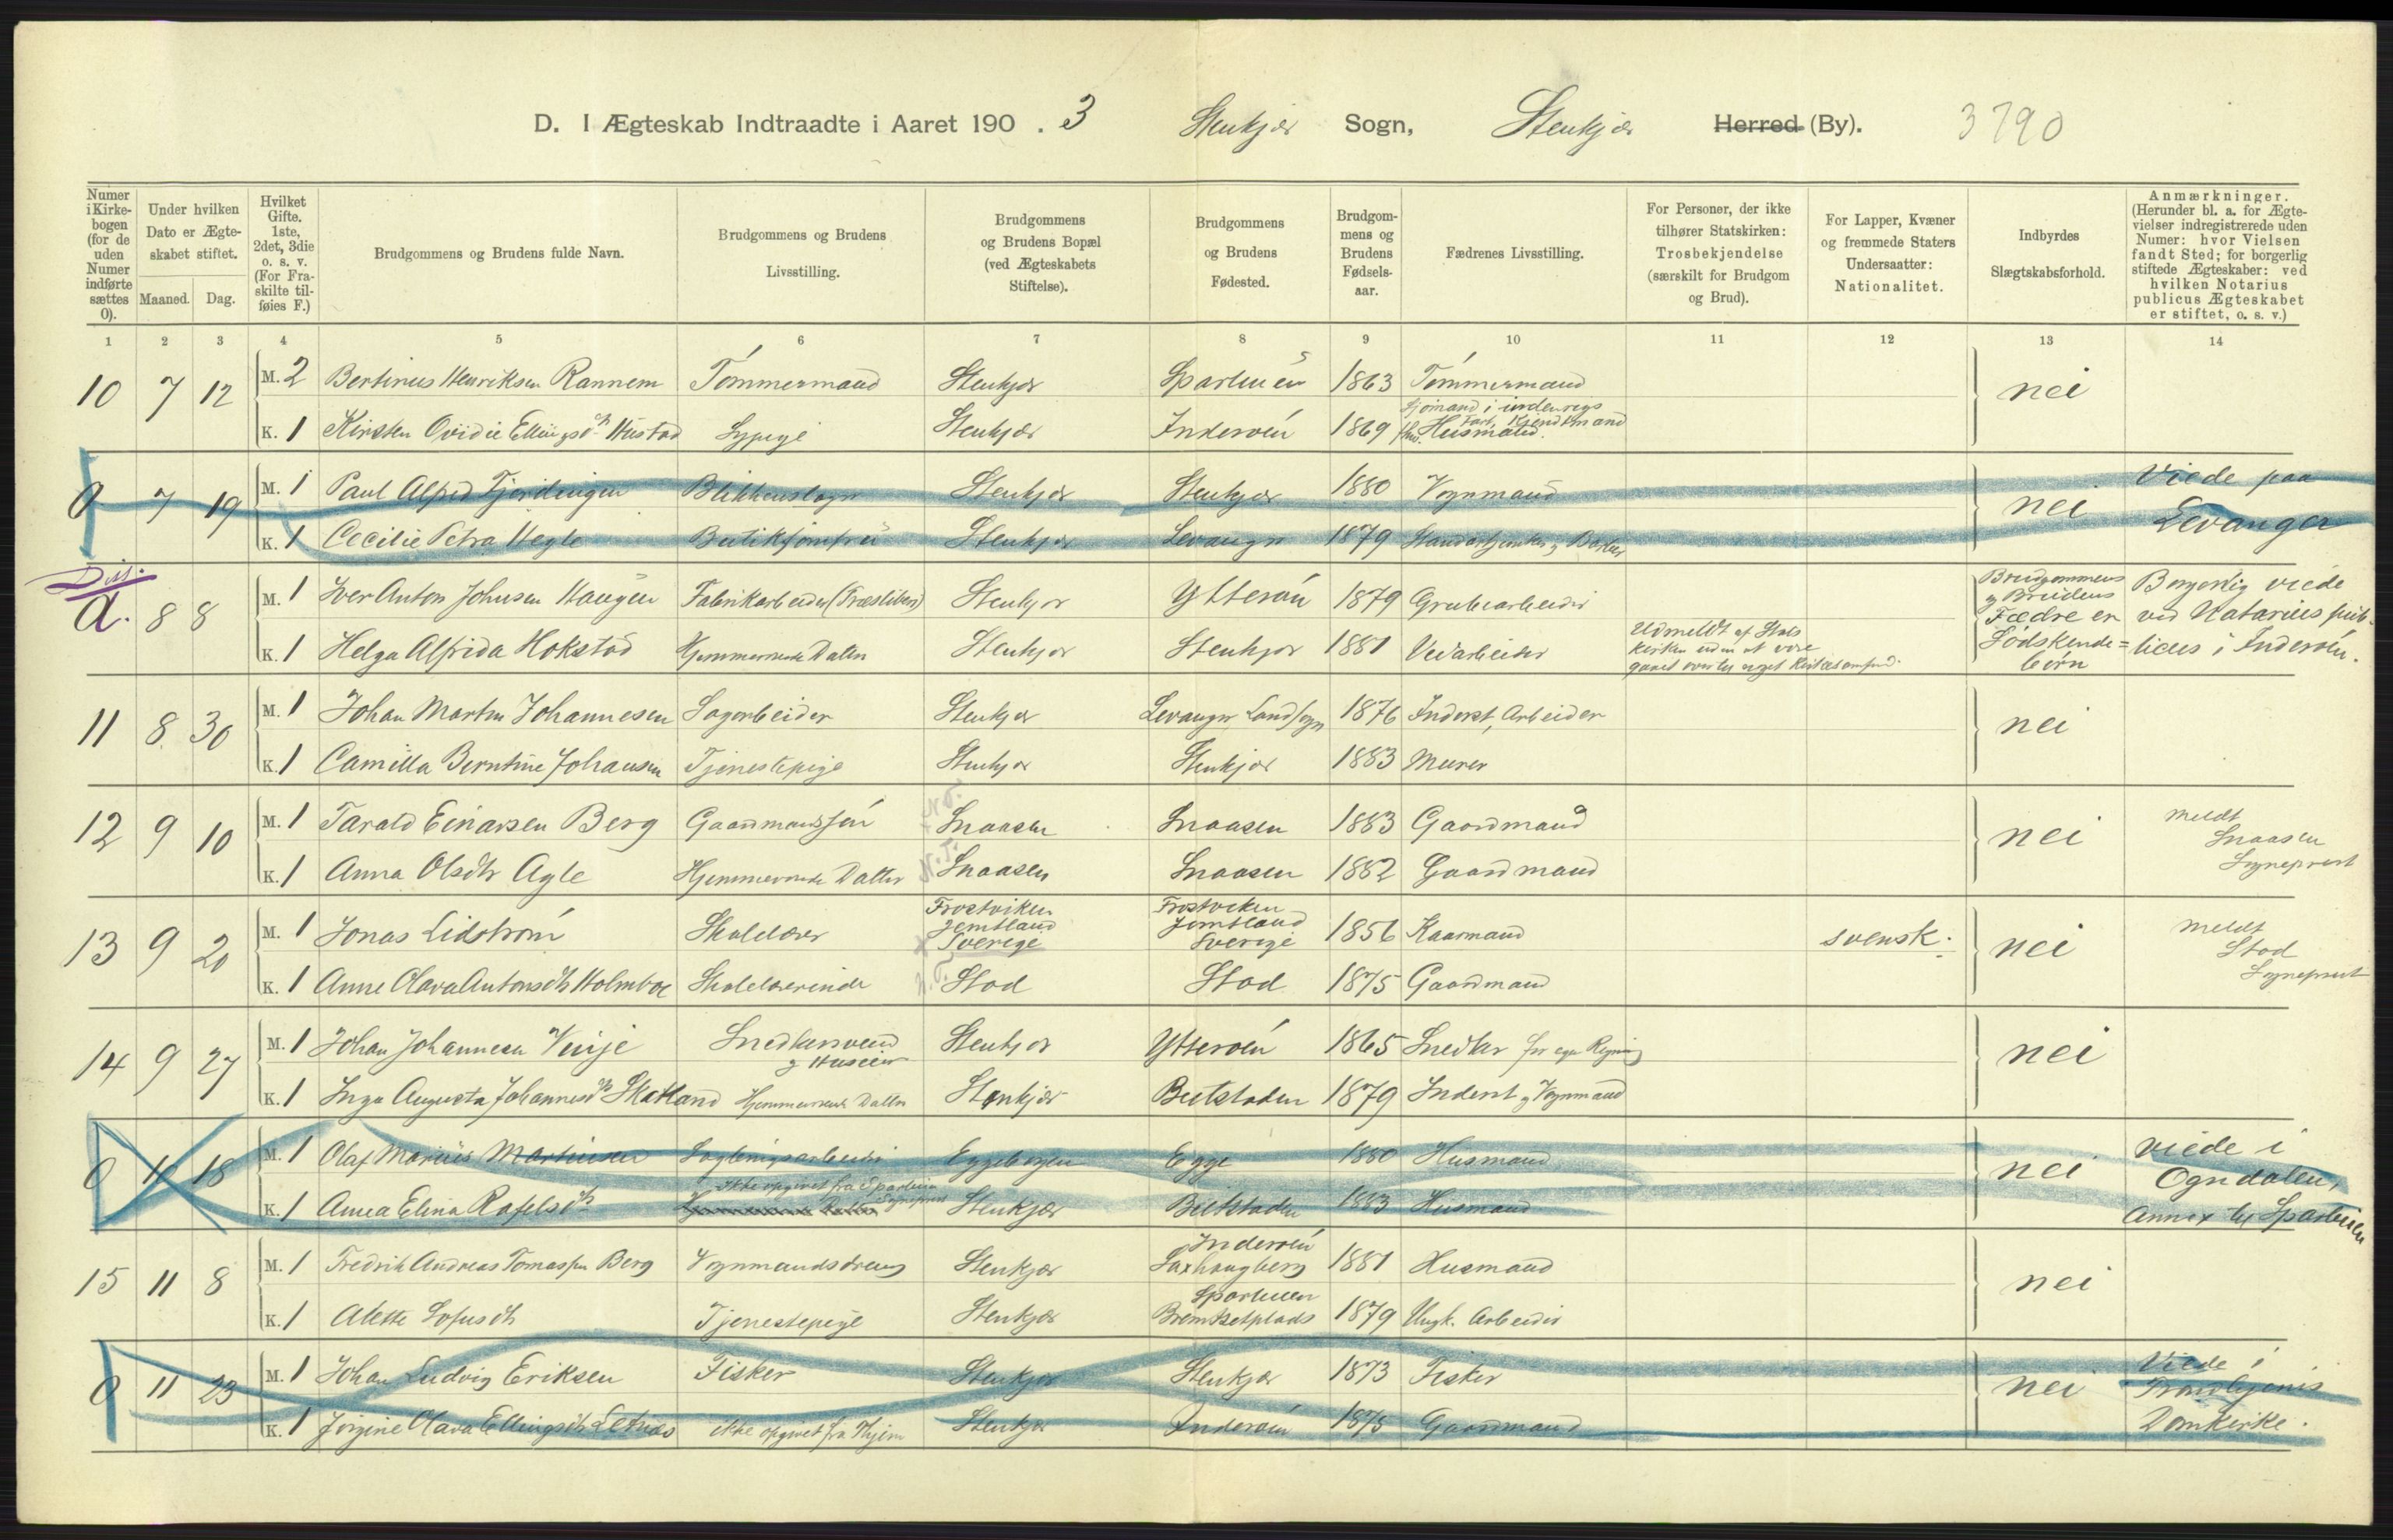 D. I Ægteskab Indtraadte i Aaret 190 . 3 Stenkjær Sogn, Stenkjær Herred (By). 3790
Numer i Kirkebogen (for de uden Numer indførte sættes 0).
Under hvilken Dato er Ægteskabet stiftet.
Maaned. Dag.
Hvilket Gifte. 1ste, 2det, 3die o. s. v. (For Fraskilte tilføies F.)
Brudgommens og Brudens fulde Navn.
Brudgommens og Brudens Livsstilling.
Brudgommens og Brudens Bopæl (ved Ægteskabets Stiftelse).
Brudgommens og Brudens Fødested.
Brudgommens og Brudens Fødselsaar.
Fædrenes Livsstilling.
For Personer, der ikke tilhører Statskirken: Trosbekjendelse (særskilt for Brudgom og Brud).
For Lapper, Kvæner og fremmede Staters Undersaatter: Nationalitet.
Indbyrdes Slægtskabsforhold.
Anmærkninger. (Herunder bl. a. for Ægtevielser indregistrerede uden Numer: hvor Vielsen fandt Sted; for borgerlig stiftede Ægteskaber: ved hvilken Notarius publicus Ægteskabet er stiftet, o. s. v.)
1 2 3 4 5 6 7 8 9 10 11 12 13 14
10 7 12 M. 2 Bertinus Henriksen Rannem Tömmermand Stenkjær 1863 Tömmermand nei
K. 1 Kirsten Ovidie Ellingsdtr Hustad Sypige Stenkjær Inderöen 1869 Sjömand i indenrigs Fart Husmand
0 7 19 M. 1 Paul Alfred Fjerdingen Blikkenslager Stenkjær Stenkjær 1880 Vognmand nei Viede paa
K. 1 Cecilie Petra Hegle Butikjomfru Stenkjær Levanger 1879 Levanger
Dis.
d. 8 8 M. 1 Iver Anton Johnsen Haugen Fabrikarbeider (Træsliberi) Stenkjær Ytterön 1879 Grubearbeider Brudgommens Borgerlig viede
og Brudens
Fædre er ved Notarius pub-
K. 1 Helga Alfrida Hokstad Hjemmeværende Datter Stenkjær Stenkjær 1881 Vedarbeider Udmeldt af Statskirken uden at være Södskende= licus i Inderöen.
gaaet over til noget Kirkesamfund. börn
11 8 30 M. 1 Johan Martin Johannesen Sagarbeider Stenkjær Levanger Landsogn 1876 Inderst, Arbeider nei
K. 1 Camilla Berntine Johansen Tjenestepige Stenkjær Stenkjær 1883 Murer
12 9 10 M. 1 Tarald Einarsen Berg Gaardmandssön N.T. Snaasen Snaasen 1883 Gaardmand nei meldt
Snaasen
K. 1 Anna Olsdtr Agle Hjemmeværende Datter N.T. Snaasen Snaasen 1882 Gaardmand Sogneprest
13 9 20 M. 1 Jonas Lidström Skolelærer Frostviken Jemtland Sverige Frostviken Jemtland Sverige 1856 svensk. nei meldt
Stod
K. 1 Anne Olava Antonsdtr Holmboe Skolelærerinde N.T. Stod Stod 1875 Gaardmand Sogneprest
14 9 27 M. 1 Johan Johannesen Vinje Snedkersvend og Huseier Stenkjær Ytteröen 1865 Snedker for egen Regning nei
K. 1 Inga Augusta Johannesdtr Skatland Hjemmeværende Datter Stenkjær Beitstaden 1879 Inderst og Vognmand
0 10 18 M. 1 Olaf Marius Martinsen Eggebogen Egge 1880 Husmand nei viede i
Ogndalen,
K. 1 Anna Elina Rafelsdtr ikke opgivet fra Sparbuen Sogneprest Stenkjær Beitstaden 1883 Husmand Annex til Sparbuen
15 11 8 M. 1 Fredrik Andreas Tomassen Berg Vognmandsdreng Stenkjær Inderöen Saxhaugberg 1881 Husmand nei
K. 1 Alette Sofusdtr Tjenestepige Stenkjær Sparbuen 1879 Ungk. Arbeider
0 11 23 M. 1 Johan Ludvig Eriksen Fisker Stenkjær Stenkjær 1873 Fisker nei Viede i
Trondhjems
K. 1 Jörgine Olava Ellingsdtr Letnes ikke opgivet fra Stenkjær Inderöen 1875 Gaardmand Domkirke.